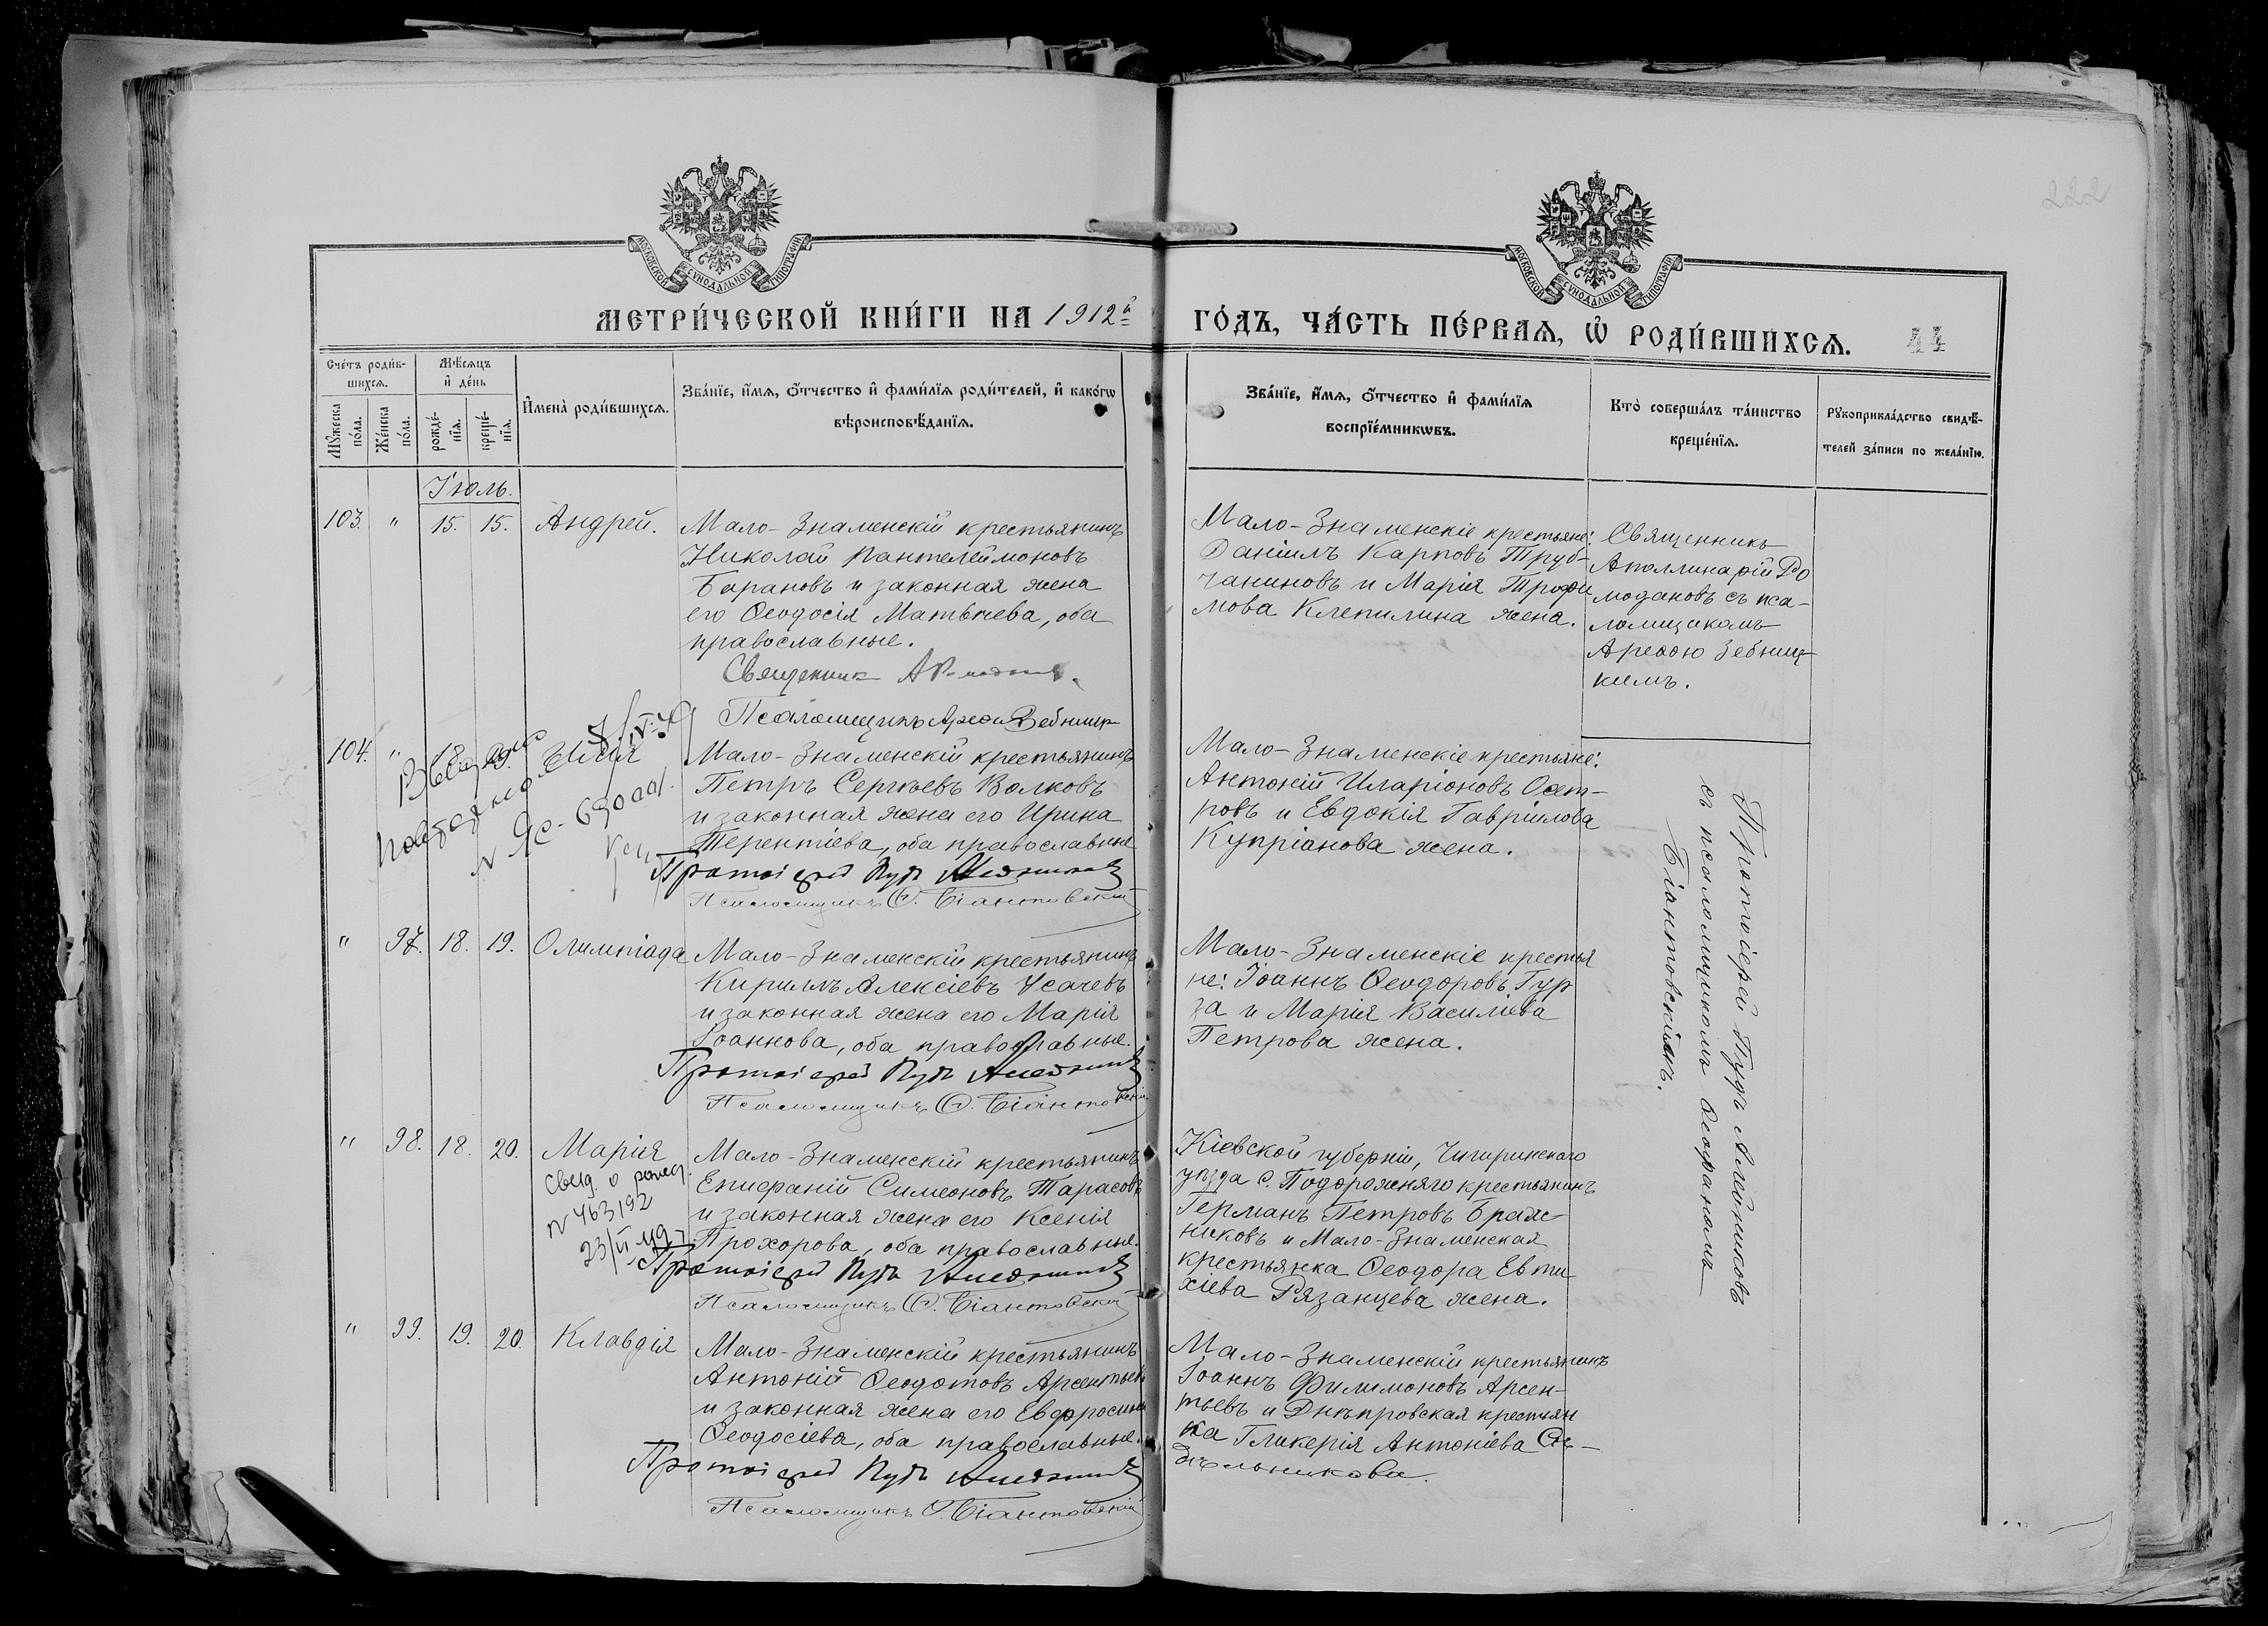 222
МОСКОВСКОЙ СѴНОДАЛЬНОЙ ТИПОГРАФІИ
МОСКОВСКОЙ СѴНОДАЛЬНОЙ ТИПОГРАФІИ
МЕТРИ́ЧЕСКОЙ КНИ́ГИ НА 1912й
ГО́ДЪ, ЧА́СТЬ ПЕ́РВАѦ, Ѡ҆ РОДИ́ВШИХСѦ. 44
Сче́тъ роди́в-
шихсѧ.
Мꙋ́жеска по́ла.
Же́нска по́ла.
Мѣ́сѧцъ
и҆ де́нь
рожде́-
нїѧ.
креще́-
нїѧ.
И҆мена̀ роди́вшихсѧ.
Зва́нїе, и҆́мѧ, ѻ҆́тчество и҆ фами́лїѧ роди́телей, и҆ како́гѡ
вѣроисповѣ́данїѧ.
Зва́нїе, и҆́мѧ, ѻ҆́тчество и҆ фами́лїѧ
воспрїе́мникѡвъ.
Кто̀ соверша́лъ та́инство
креще́нїѧ.
Рꙋкоприкла́дство свидѣ́-
телей за́писи по жела́нїю.
Іюль.
103. " 15. 15. Андрей.
Мало-Знаменскій крестьянинъ
Николай Пантелеймоновъ
Барановъ и законная жена
его Ѳеодосія Матвѣева, оба
православные.
Священник
Псаломщикъ
Мало-Знаменскіе крестьяне:
Даніилъ Карповъ Труб-
чаниновъ и Марія Трофи
мова Клепилина жена.
Священникъ
Аполлинарій Ро
модановъ съ пса-
ломщикомъ
кимъ.
104. " 18. 19. Илія
Мало-Знаменскій крестьянинъ
Петръ Сергѣевъ Волковъ
и законная жена его Ирина
Терентіева, оба православные
Протоіерей Пудъ Алейниковъ
Псаломщикъ Ѳ. Біантовскій
Мало-Знаменскіе крестьяне:
Антоній Иларіоновъ Осет-
ровъ и Евдокія Гавріилова
Купріанова жена.
Протоіерей Пудъ Алейниковъ
съ псаломщикомъ Ѳеофаномъ
Біантовскимъ.
" 97. 18. 19. Олимпіада
Мало-Знаменскій крестьянинъ
Кириллъ Алексіевъ Усачевъ
и законная жена его Марія
Іоаннова, оба православные.
Протоіерей Пудъ Алейниковъ
Псаломщикъ Ѳ. Біантовскій
Мало-Знаменскіе крестья
не: Іоаннъ Ѳеодоровъ Гур
за и Марія Василіева
Петрова жена.
" 98. 18. 20. Марія
Свид. о рожд.
N 463192
Мало-Знаменскій крестьянинъ
Епифаній Симеоновъ Тарасовъ
и законная жена его Ксенія
Прохорова, оба православные.
Протоіерей Пудъ Алейниковъ
Псаломщикъ Ѳ. Біантовскій
Кіевской губерніи, Чигиринскаго
уѣзда с. Подорожняго крестьянинъ
Германъ Петровъ Браж-
никовъ и Мало-Знаменская
крестьянка Ѳеодора Евти
хіева Рязанцева жена.
" 99. 19. 20. Клавдія
Мало-Знаменскій крестьянинъ
Антоній Ѳеодотовъ Арсентьевъ
и законная жена его Евфросинія
Ѳеодосіева, оба православные.
Протоіерей Пудъ Алейниковъ
Псаломщикъ Ѳ. Біантовскій
Мало-Знаменскій крестьянинъ
Іоаннъ Филимоновъ Арсен-
тьевъ и Днѣпровская крестьян
ка Гликерія Антоніева Сѣ-
дѣльникова.